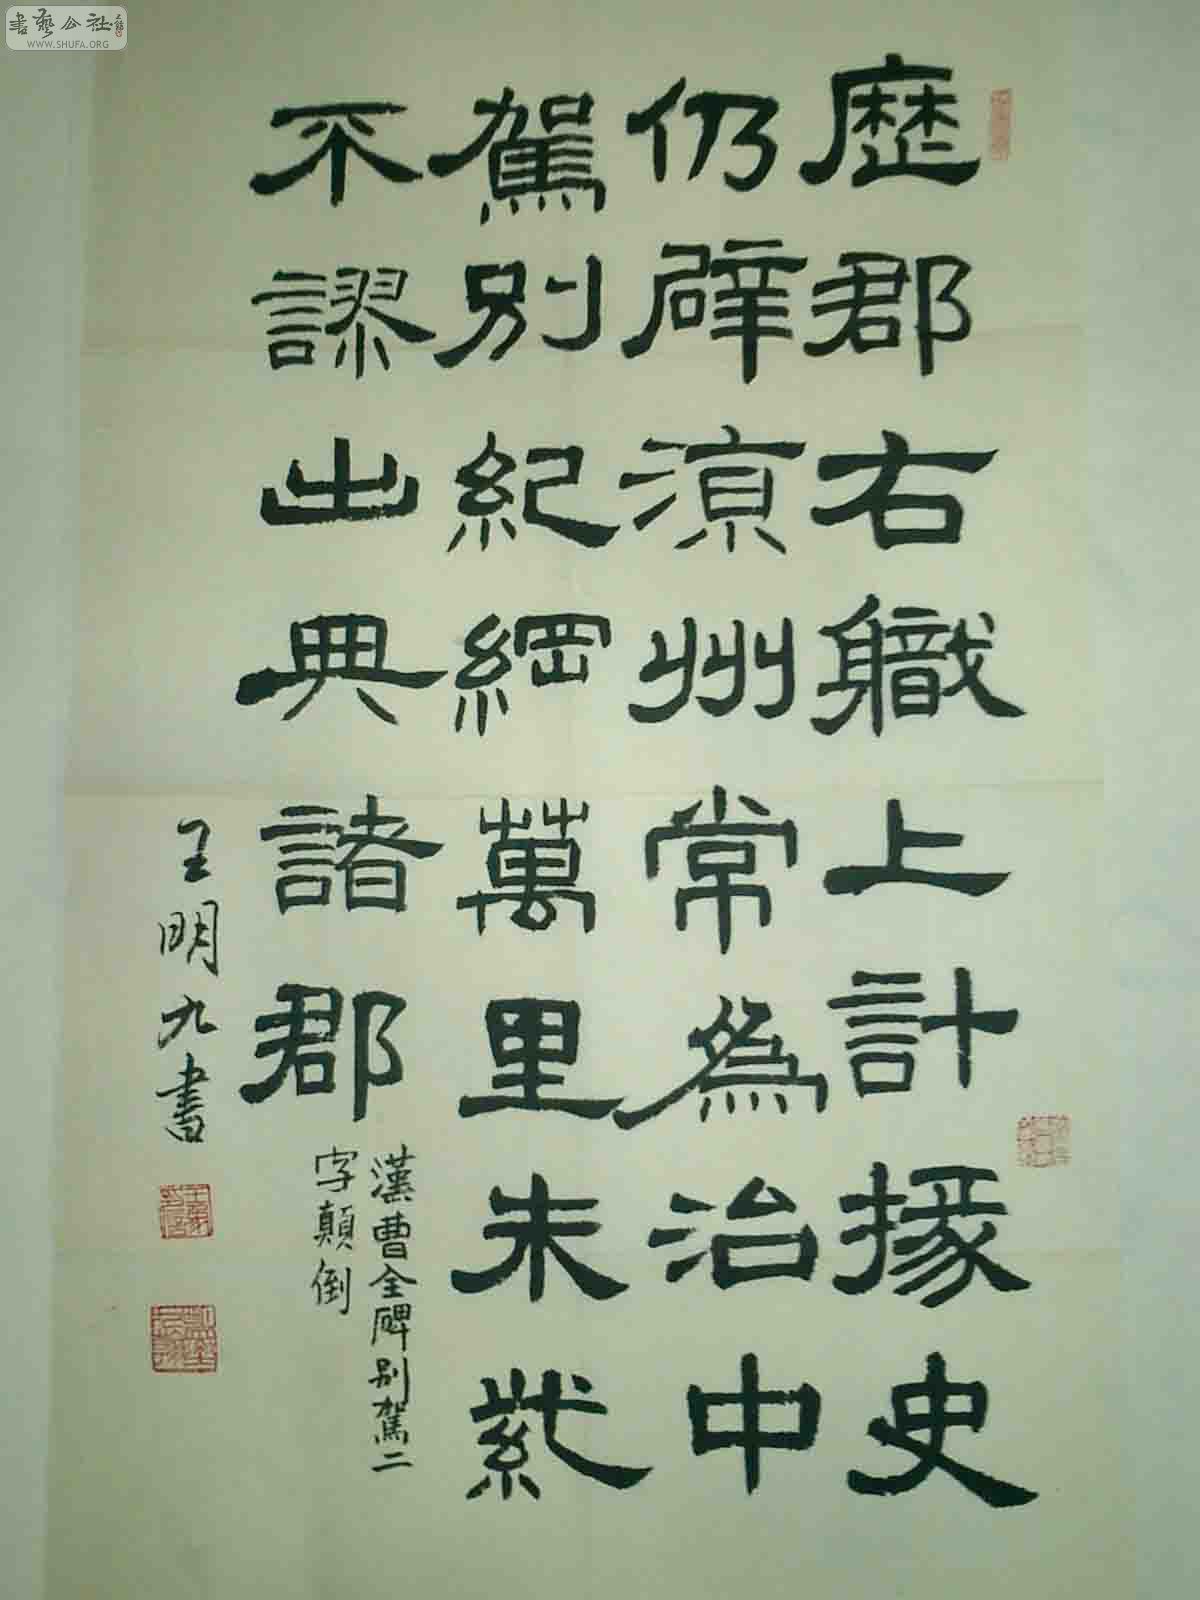 歷郡右職上計掾史
仍辟涼州常為治中
駕別紀綱萬里朱紫
不謬出典諸郡
漢曹全碑別駕二
字顛倒
王明九書
書藝公社
WWW.SHUFA.ORG